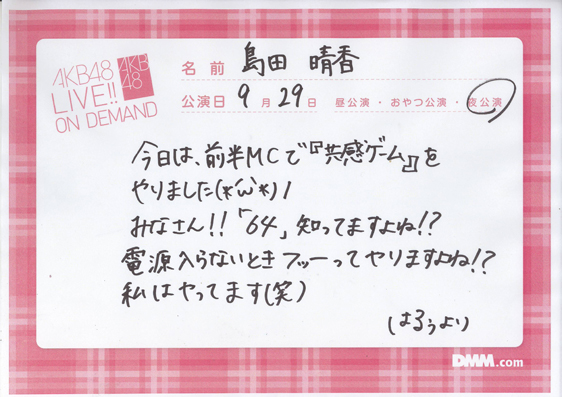 AKB48
LIVE!!
ON DEMAND
AKB
48
名前 島田 晴香
公演日 9月29日 昼公演・おやつ公演・夜公演
今日は、前半MCで『共感ゲーム』を
やりました(*'ω'*)ノ
みなさん!!「64」知ってますよね!?
電源入らないときフッーってヤリますよね!?
私はやってます(笑)
はるぅより
DMM.com